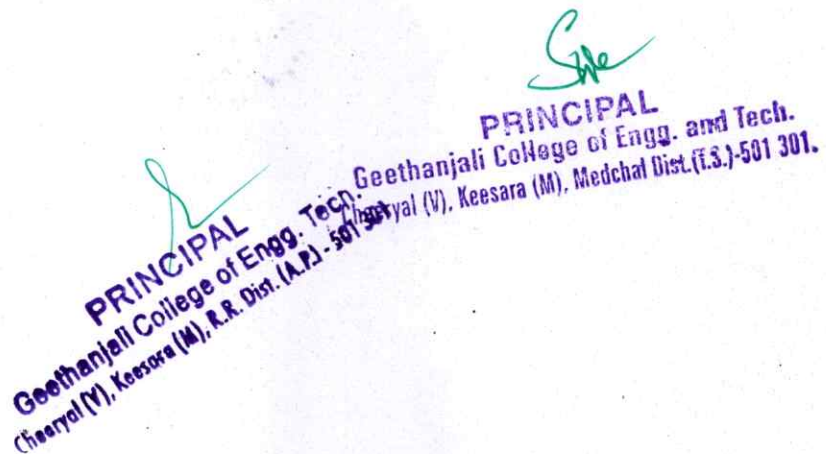 PRINCIPAL
Geethanjali College of Engg. Tech.
Cheeryal (V), Keesara (M), R.R. Dist. (A.P.) - 501 301
PRINCIPAL
Geethanjali College of Engg. and Tech.
Cheeryal (V), Keesara (M), Medchal Dist.(T.S.)-501 301.